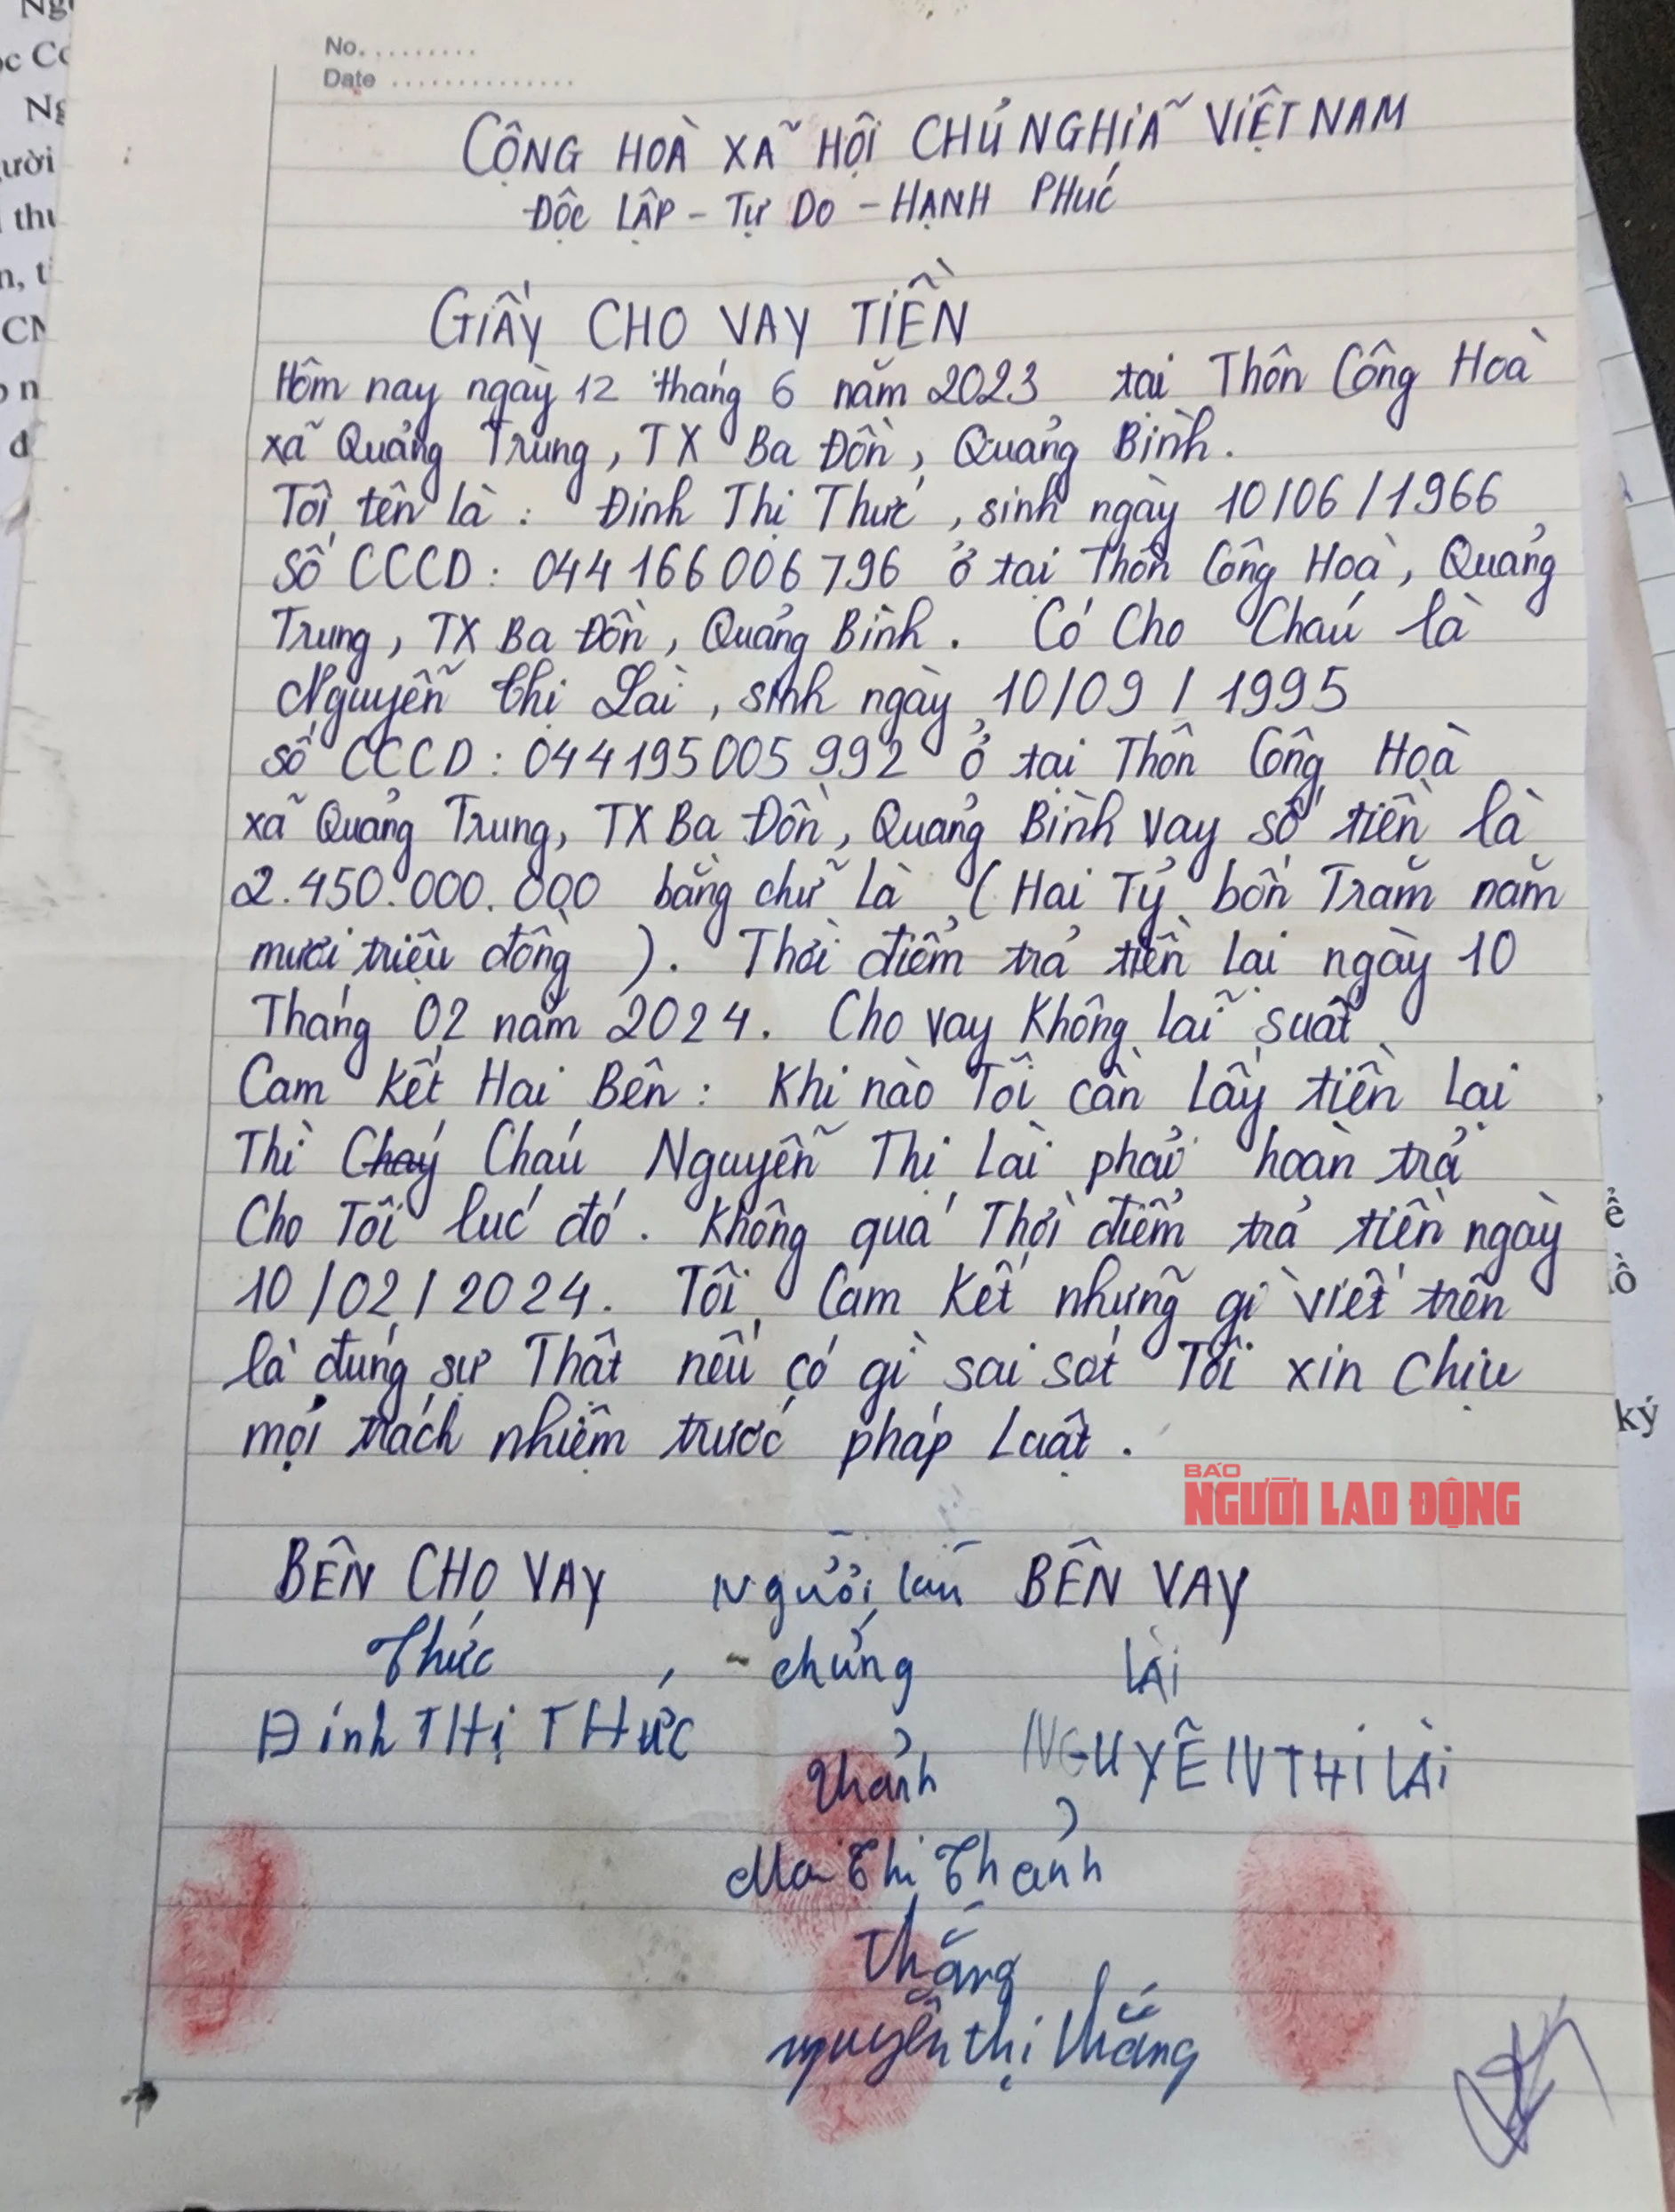 No. .........
Date ...............
CỘNG HOÀ XÃ HỘI CHỦ NGHĨA VIỆT NAM
ĐỘC LẬP - TỰ DO - HẠNH PHÚC
GIẤY CHO VAY TIỀN
Hôm nay ngày 12 tháng 6 năm 2023 tại Thôn Công Hoà
xã Quảng Trung, TX Ba Đồn, Quảng Bình.
Tôi tên là : Đinh Thị Thức, sinh ngày 10/06/1966
Số CCCD: 044166006796 ở tại Thôn Công Hoà, Quảng
Trung, TX Ba Đồn, Quảng Bình. Có Cho Cháu là
Nguyễn Thị Lài, sinh ngày 10/09/1995
số CCCD: 044195005992 ở tại Thôn Công Hoà
xã Quảng Trung, TX Ba Đồn, Quảng Bình vay số tiền là
2.450.000.000 bằng chữ là (Hai Tỷ bốn Trăm năm
mươi triệu đồng ). Thời điểm trả tiền lại ngày 10
Tháng 02 năm 2024. Cho vay Không lãi suất
Cam Kết Hai Bên: Khi nào Tôi cần Lấy tiền Lại
Thì Cháu Nguyễn Thị Lài phải hoàn trả
Cho Tôi lúc đó. Không quá Thời điểm trả tiền ngày
10/02/2024. Tôi Cam Kết những gì viết trên
là đúng sự Thật nếu có gì sai sót Tôi xin Chịu
mọi trách nhiệm trước pháp Luật.
BÁO
NGƯỜI LAO ĐỘNG
BÊN CHO VAY Người làm BÊN VAY
Thức chứng LÀI
Đinh THỊ THỨC NGUYỄN THỊ LÀI
Thảnh
Mai Thị Thảnh
Thắng
nguyễn thị thắng
ký